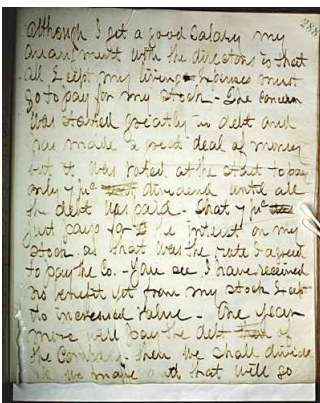 288
although I get a good salary my
arrangement with the directors is that
all except my living expenses must
go to pay for my stock - The concern
was started greatly in debt and
has made a great deal of money
but it was voted at the start to pay
only 7 pr ct dividend until all
the debt was paid - That 7 pr ct
just pays for the interest on my
stock as that was the rate I agreed
to pay the Co. - You see I have received
no benefit yet from my stock except
its increased value - One year
more will pay the debt of
the Company - then we shall divide
all we make and that will go